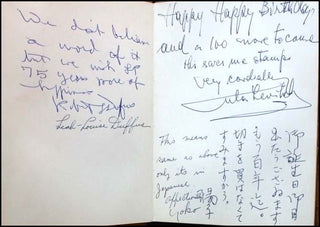 We don't believe
a word of it
but we wish
75 years more of
happiness
Leah-Louise
Happy Happy Birthday
and a 100 more to come
This saves me stamps
very cordially
This means
same as above
only its in
Japanese
Yoko
御誕生日御目
出たうござい
もう百年迄。
切手を買はなくて
すみますから。